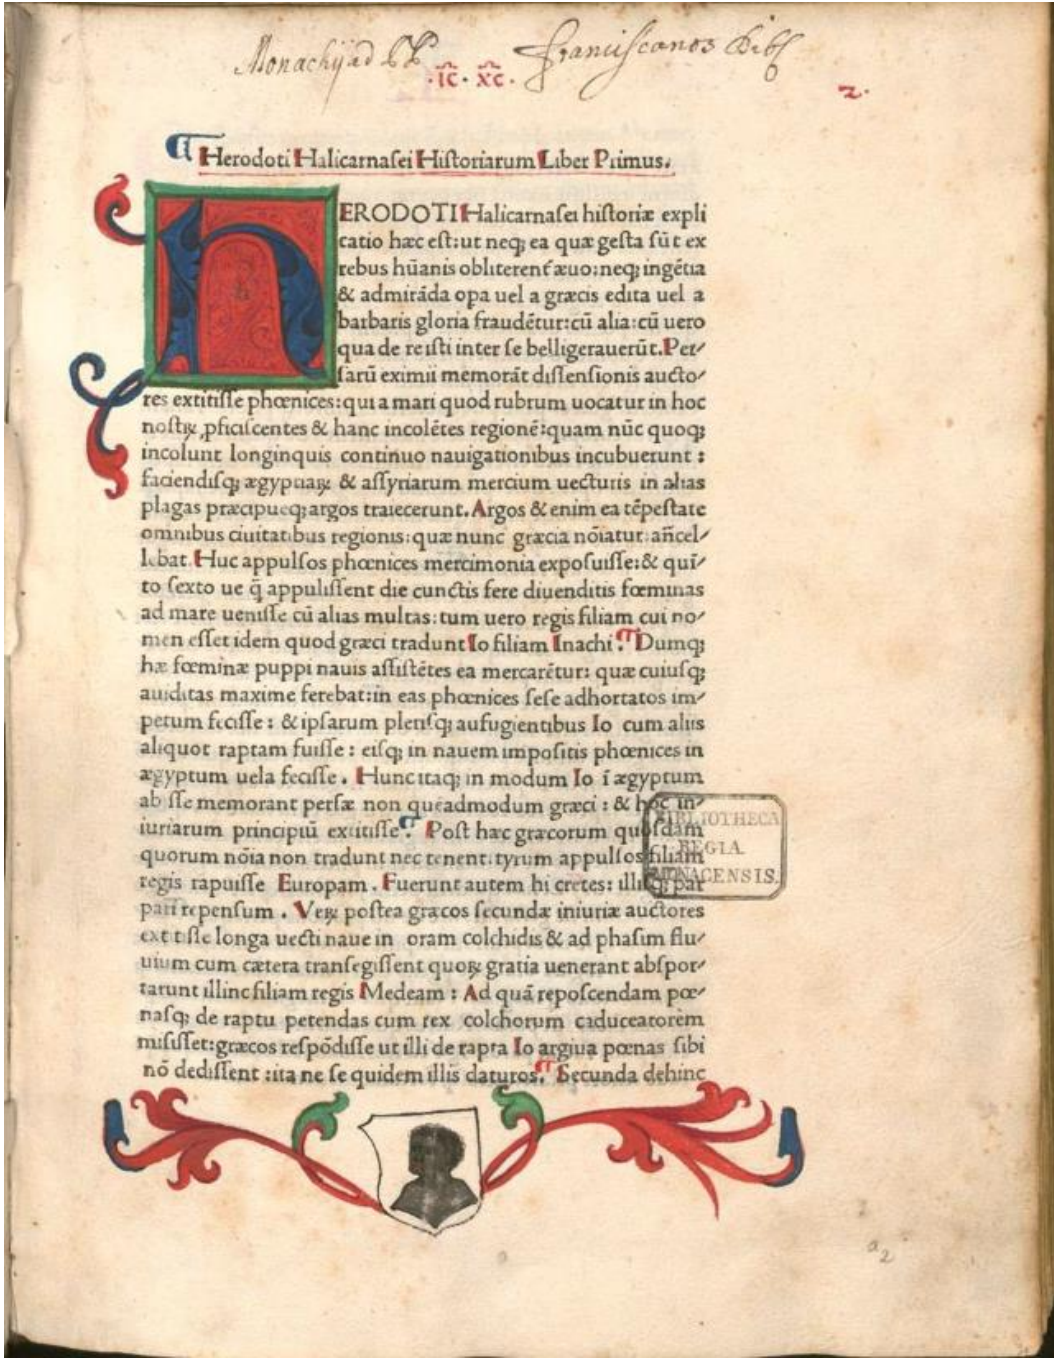 Monachij ad PP Franciscanos Bibl
·IC·XC·
2·
¶ Herodoti Halicarnasei Historiarum Liber Primus.
HERODOTI Halicarnasei historiæ expli
catio hæc est: ut neqꝫ ea quæ gesta sūt ex
rebus hūanis obliterent᷑ æuo: neqꝫ ingētia
& admirāda opa uel a græcis edita uel a
barbaris gloria fraudētur: cū alia: cū uero
qua de re isti inter se belligerauerūt. Per/
sarū eximii memorāt dissensionis aucto/
res extitisse phœnices: qui a mari quod rubrum uocatur in hoc
nostꝝ ꝓficiscentes & hanc incolētes regionē: quam nūc quoqꝫ
incolunt longinquis continuo nauigationibus incubuerunt :
faciendisqꝫ ægyptiaꝝ & assyriarum mercium uecturis in alias
plagas præcipueqꝫ argos traiecerunt. Argos & enim ea tēpestate
omnibus ciuitatibus regionis: quæ nunc græcia nōiatur: an̄cel/
lebat. Huc appulsos phœnices mercimonia exposuisse: & quī/
to sexto ue q̄ appulissent die cunctis fere diuenditis fœminas
ad mare uenisse cū alias multas: tum uero regis filiam cui no/
men esset idem quod græci tradunt Io filiam Inachi . ¶ Dumqꝫ
hæ fœminæ puppi nauis assistētes ea mercarētur: quæ cuiusqꝫ
auiditas maxime ferebat: in eas phœnices sese adhortatos im/
petum fecisse : & ipsarum plerisqꝫ aufugientibus Io cum aliis
aliquot raptam fuisse : eisqꝫ in nauem impositis phœnices in
ægyptum uela fecisse . Hunc itaqꝫ in modum Io ī ægyptum
abisse memorant persæ non quēadmodum græci : & hoc in/
iuriarum principiū extitisse ¶. Post hæc græcorum quosdam
quorum nōia non tradunt nec tenent: tyrum appulsos filiam
regis rapuisse Europam . Fuerunt autem hi cretes: illisqꝫ par
pari repensum . Veꝝ postea græcos secundæ iniuriæ auctores
extitisse longa uecti naue in oram colchidis & ad phasim flu/
uium cum cætera transegissent quoꝝ gratia uenerant abspor/
tarunt illinc filiam regis Medeam : Ad quā reposcendam pœ/
nasqꝫ de raptu petendas cum rex colchorum caduceatorem
misisset: græcos respōdisse ut illi de rapta Io argiua pœnas sibi
nō dedissent : ita ne se quidem illis daturos. ¶ Secunda dehinc
BIBLIOTHECA
REGIA
MONACENSIS.
a2